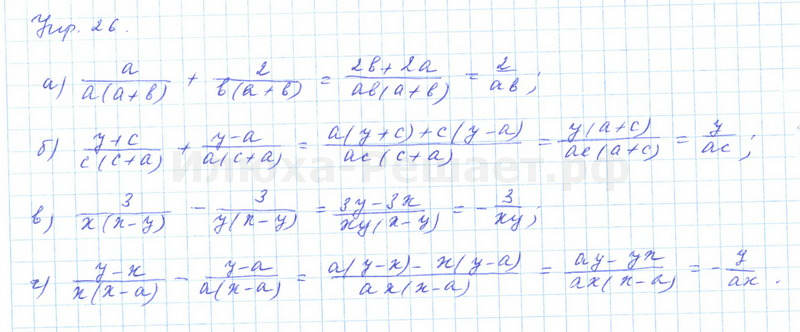 Упр. 26.
а) a/(a(a+b)) + 2/(b(a+b)) = (2b+2a)/(ab(a+b)) = 2/(ab);
б) (y+c)/(c(c+a)) + (y-a)/(a(c+a)) = (a(y+c)+c(y-a))/(ac(c+a)) = (y(a+c))/(ac(a+c)) = y/(ac);
в) 3/(x(x-y)) - 3/(y(x-y)) = (3y-3x)/(xy(x-y)) = -3/(xy);
г) (y-x)/(x(x-a)) - (y-a)/(a(x-a)) = (a(y-x)-x(y-a))/(ax(x-a)) = (ay-yx)/(ax(x-a)) = -y/(ax).
Илюха-решает.рф